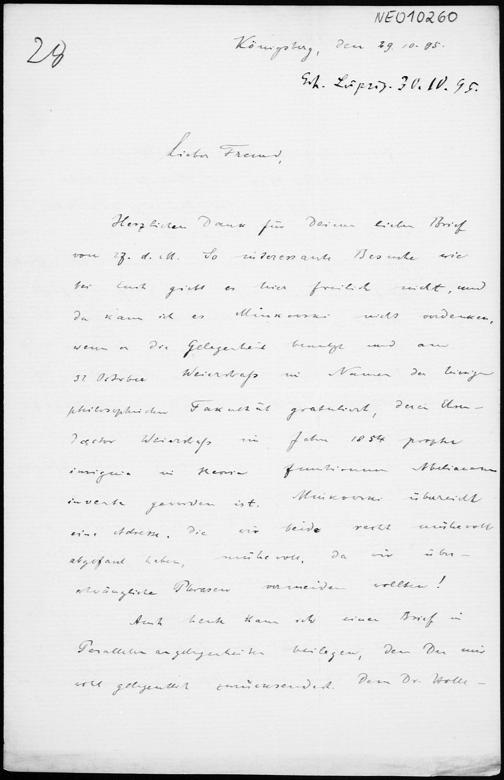 NEO10260
28
Königsberg, den 29.10.95.
Erh. Leipzig. 30.10.95.
Lieber Freund,
Herzlichen Dank für Deinen lieben Brief
vom 27. d. M. So interessante Besuche wie
bei Euch giebt es hier freilich nicht, und
da kann ich es Minkowski nicht verdenken,
wenn er die Gelegenheit benutzt und am
31 October Weierstraß im Namen der hiesigen
philosophischen Fakultät gratulirt, deren Ehren-
doctor Weierstraß im Jahre 1854 propter
insignia in theoria functionum Abelianarum
inventa geworden ist. Minkovski überreicht
eine Adresse, die wir beide recht mühevoll
abgefaßt haben, mühevoll, da wir über-
schwängliche Phrasen vermeiden wollten!
Auch heute kann ich einen Brief in
Parallelenangelegenheiten beilegen, den Du mir
wohl gelegentlich zurücksendest. Dem Dr.